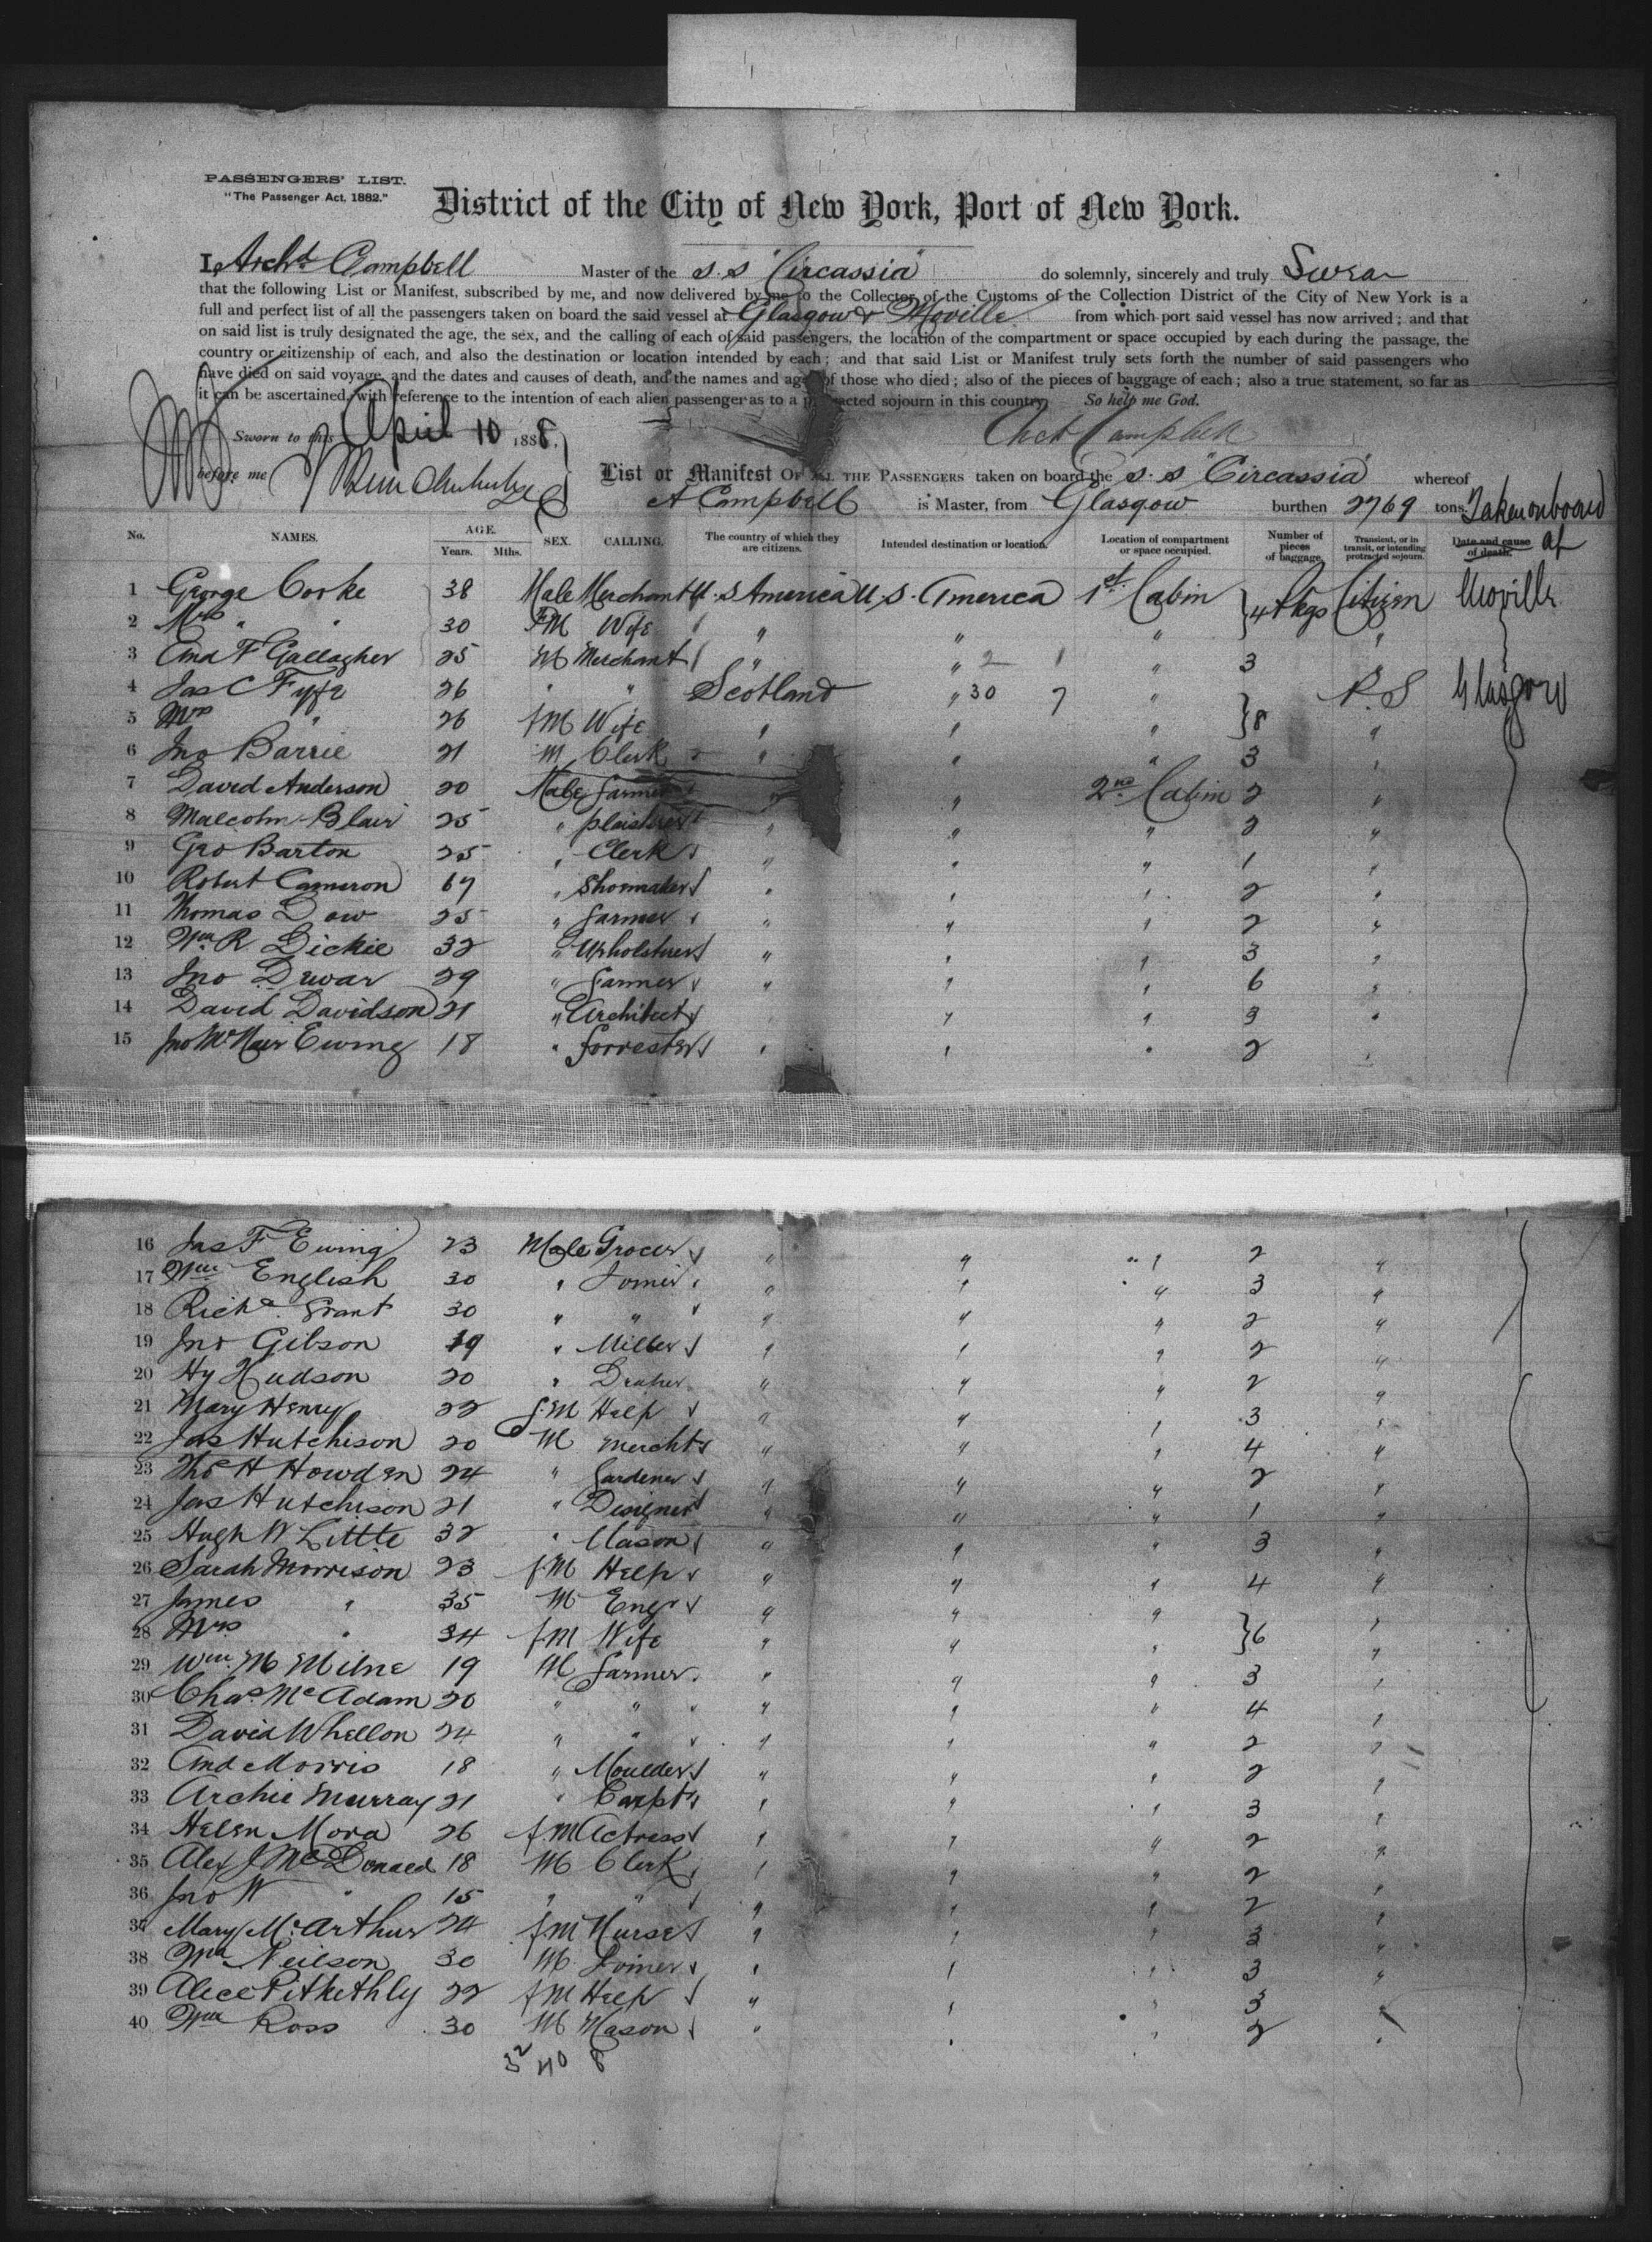 PASSENGERS' LIST.
"The Passenger Act, 1882."
District of the City of New York, Port of New York.
I, Archd. Campbell Master of the S.S "Circassia" do solemnly, sincerely and truly Swear
that the following List or Manifest, subscribed by me, and now delivered by me to the Collector of the Customs of the Collection District of the City of New York is a
full and perfect list of all the passengers taken on board the said vessel at Glasgow & Moville from which port said vessel has now arrived; and that
on said list is truly designated the age, the sex, and the calling of each of said passengers, the location of the compartment or space occupied by each during the passage, the
country or citizenship of each, and also the destination or location intended by each; and that said List or Manifest truly sets forth the number of said passengers who
have died on said voyage, and the dates and causes of death, and the names and ages of those who died; also of the pieces of baggage of each; also a true statement, so far as
it can be ascertained, with reference to the intention of each alien passenger as to a protracted sojourn in this country. So help me God.
Sworn to this April 10 1888, Archd Campbell
before me
List or Manifest OF ALL THE PASSENGERS taken on board the S.S "Circassia" whereof
A Campbell is Master, from Glasgow burthen 2769 tons. Taken on board at
No. NAMES. AGE. Years. Mths. SEX. CALLING. The country of which they are citizens. Intended destination or location. Location of compartment or space occupied. Number of pieces of baggage. Transient, or in transit, or intending protracted sojourn. Date and cause of death.
1 George Cooke 38 Male Merchant U.S America U.S. America 1st Cabin 4 Pkgs Citizen Moville
2 Mrs " " 30 FM Wife " " " "
3 And F Gallagher 25 M Merchant " " 2 " 3 "
4 Jas C Fyfe 26 " " Scotland " 30 7 " P.S Glasgow
5 Mrs " 26 fM Wife " " " 8 "
6 Jno Barrie 21 M Clerk " " " 3 "
7 David Anderson 20 Male farmer " " 2nd Cabin 2 "
8 Malcolm Blair 25 " plaisterer " " " 2 "
9 Geo Barton 25 " Clerk " " " 1 "
10 Robert Cameron 67 " Shoemaker " " " 2 "
11 Thomas Dow 25 " farmer " " " 2 "
12 Wm R Dickie 32 " Upholsterer " " " 3 "
13 Jno Dewar 29 " farmer " " " 6 "
14 David Davidson 21 " Architect " " 3 "
15 Jno McNair Ewing 18 " forrester " " " 2 "
16 Jas F Ewing 23 Male Grocer " " " " 2 "
17 Wm English 30 " Joiner " " " 3 "
18 Richd Grant 30 " " " " " 2 "
19 Jno Gibson 19 " Miller " " " 2 "
20 Hy Hudson 20 " Draper " " " 2 "
21 Mary Henry 22 f.M Help " " " 3 "
22 Jas Hutchison 20 M Mercht " " " 4 "
23 Thos H Howden 24 " Gardener " " " 2 "
24 Jas Hutchison 21 " Designer " " " 1 "
25 Hugh W Little 32 " Mason " " " 3 "
26 Sarah Morrison 23 f.M Help " " " 4 "
27 James " 35 M Engr " " " "
28 Mrs " 34 f.M Wife " " " 6 "
29 Wm. M Milne 19 M farmer " " " 3 "
30 Chas. McAdam 20 " " " " " 4 "
31 David Whellon 24 " " " " " 2 "
32 And Morris 18 " Moulder " " " 2 "
33 Archie Murray 21 " Carpt " " " 3 "
34 Helen Mora 26 f.M Actress " " " 2 "
35 Alex J McDonald 18 M Clerk " " " 2 "
36 Jno W " 15 " " " " " 2 "
37 Mary McArthur 24 f.M Nurse " " " 3 "
38 Wm Neilson 30 M Joiner " " " 3 "
39 Alice Pitkethly 22 f.M Help " " " 3 "
40 Wm Ross 30 M Mason " " " 2 "
32 40 8